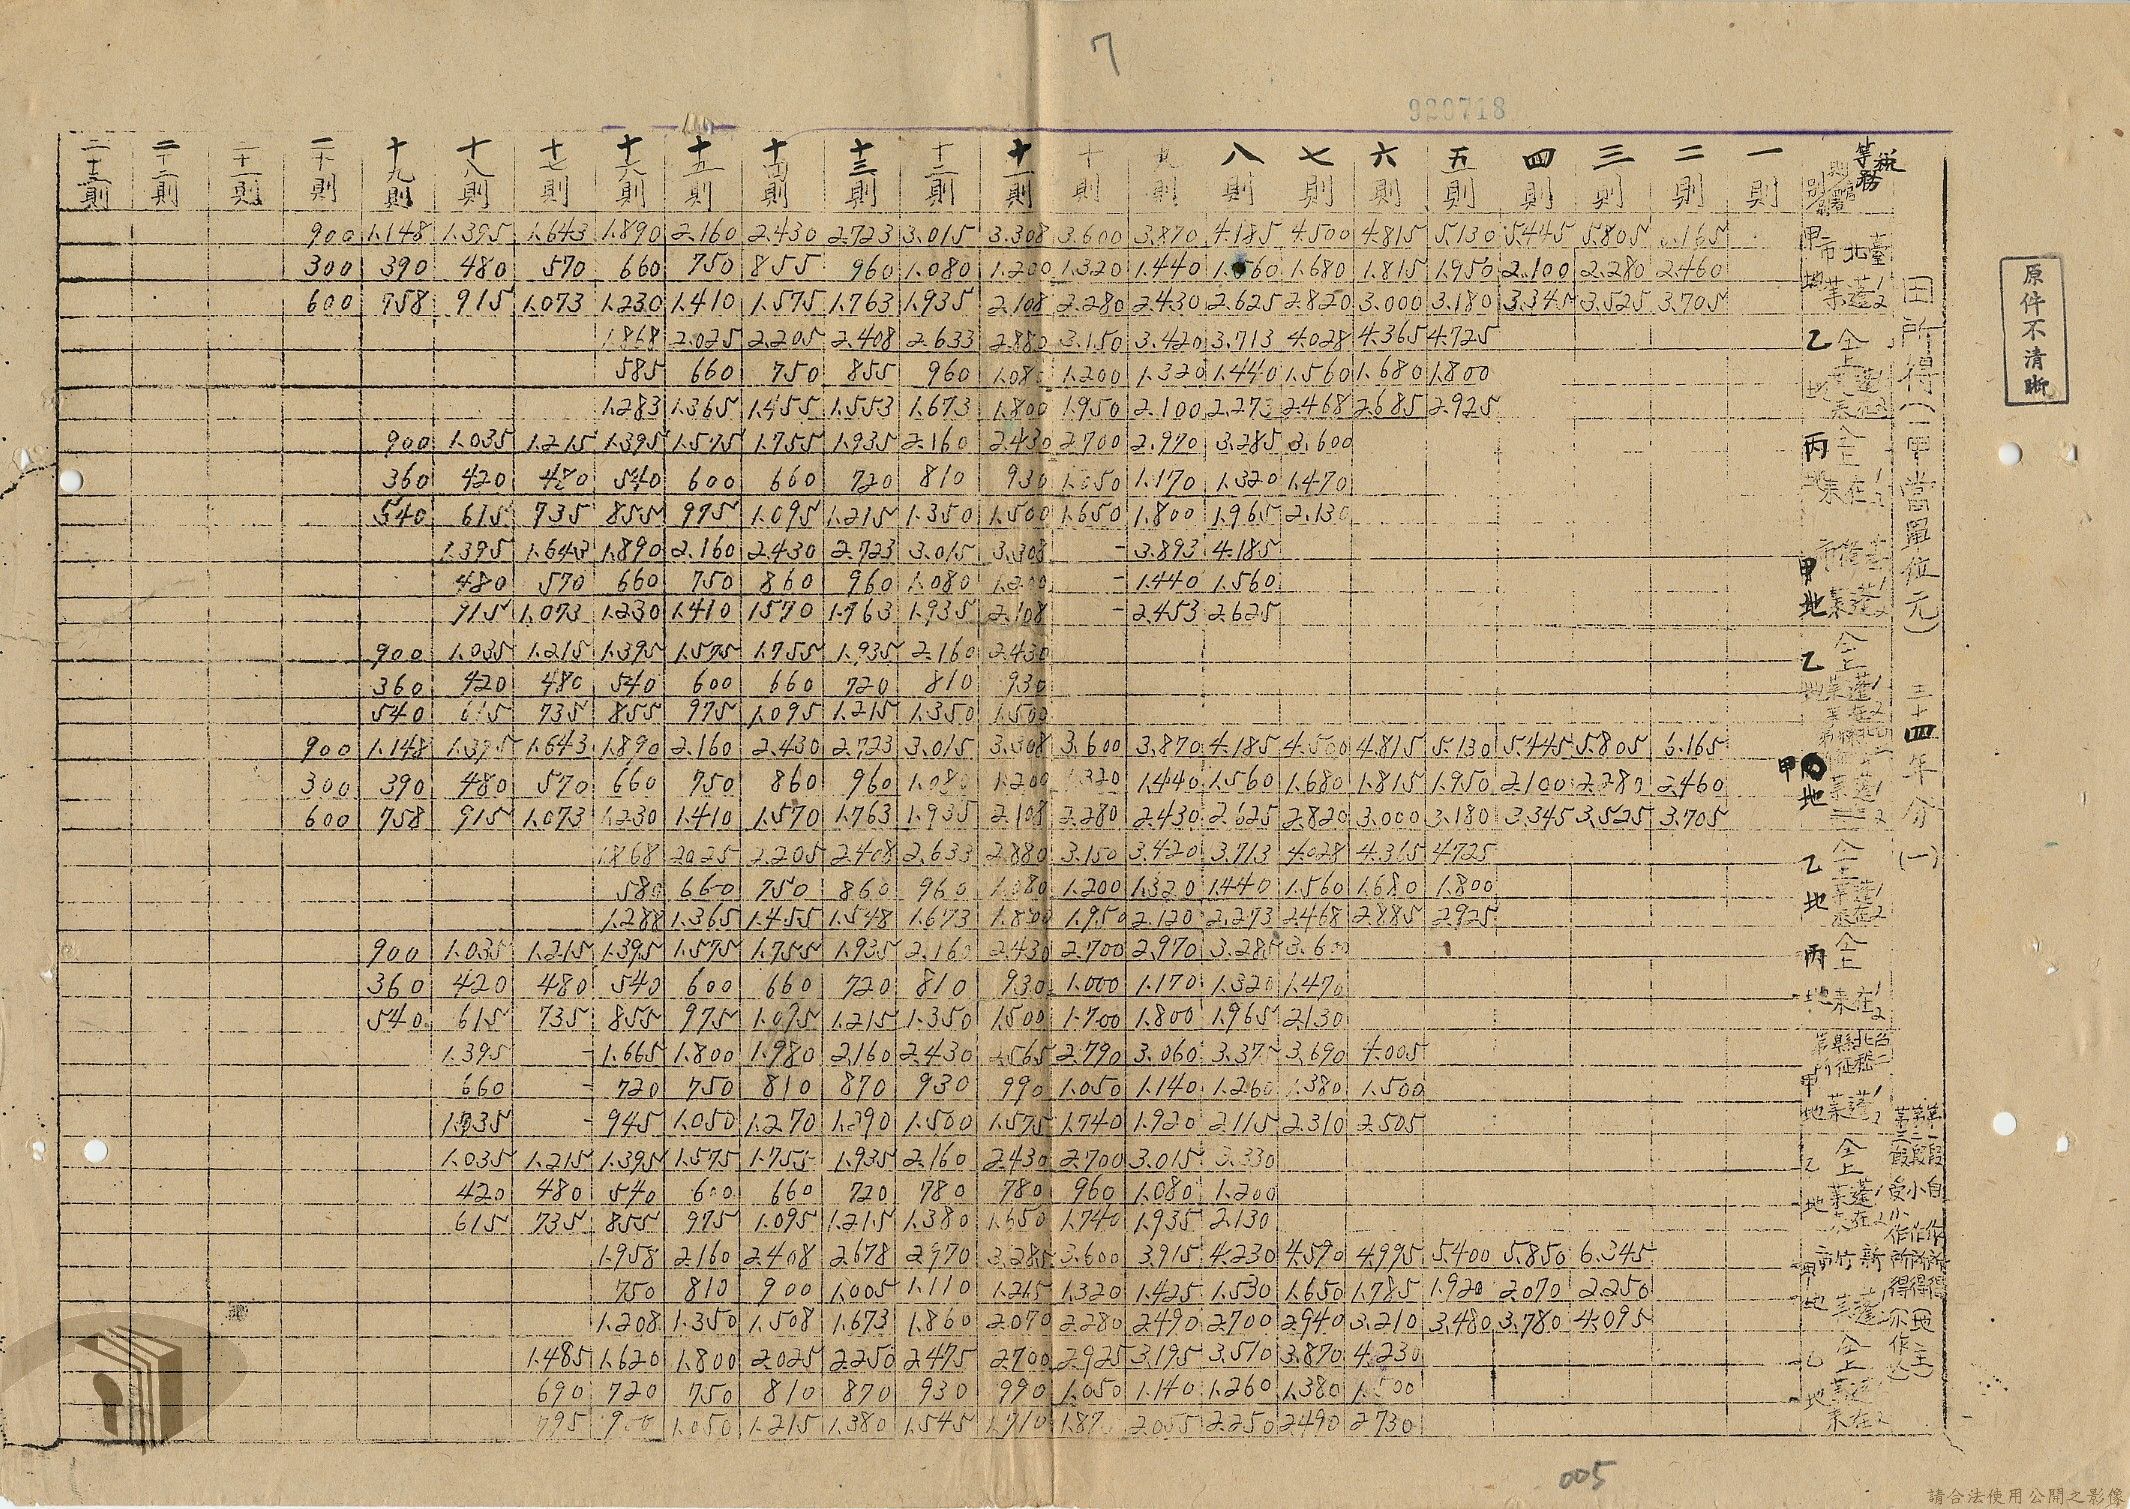 7
920718
原件不清晰
田所得(一甲當單位元) 三十四年分(一)
第一段 自作所得(地主)
第二段 小作所得
稅務 等則 別
一則 二則 三則 四則 五則 六則 七則 八則 九則 十則 十一則 十二則 十三則 十四則 十五則 十六則 十七則 十八則 十九則 二十則 二十一則 二十二則 二十三則
臺北市 甲地 蓬萊 1/2
900 1.148 1.395 1.643 1.890 2.160 2.430 2.723 3.015 3.308 3.600 3.870 4.185 4.500 4.815 5.130 5.445 5.805 6.165
300 390 480 570 660 750 855 960 1.080 1.200 1.320 1.440 1.560 1.680 1.815 1.950 2.100 2.280 2.460
600 758 915 1.073 1.230 1.410 1.575 1.763 1.935 2.108 2.280 2.430 2.625 2.820 3.000 3.180 3.345 3.525 3.705
仝上 乙地
1.868 2.025 2.205 2.408 2.633 2.880 3.150 3.420 3.713 4.028 4.365 4.725
585 660 750 855 960 1.080 1.200 1.320 1.440 1.560 1.680 1.800
1.283 1.365 1.455 1.553 1.673 1.800 1.950 2.100 2.273 2.468 2.685 2.925
仝上 丙地 在來 1/2
900 1.035 1.215 1.395 1.575 1.755 1.935 2.160 2.430 2.700 2.970 3.285 3.600
360 420 480 540 600 660 720 810 930 1.050 1.170 1.320 1.470
540 615 735 855 975 1.095 1.215 1.350 1.500 1.650 1.800 1.965 2.130
甲地 蓬萊 1/2
1.395 1.643 1.890 2.160 2.430 2.723 3.015 3.308 - 3.893 4.185
480 570 660 750 860 960 1.080 1.200 - 1.440 1.560
915 1.073 1.230 1.410 1.570 1.763 1.935 2.108 - 2.453 2.625
仝上 乙地
900 1.035 1.215 1.395 1.575 1.755 1.935 2.160 2.430
360 420 480 540 600 660 720 810 930
540 615 735 855 975 1.095 1.215 1.350 1.500
甲地
900 1.148 1.395 1.643 1.890 2.160 2.430 2.723 3.015 3.308 3.600 3.870 4.185 4.500 4.815 5.130 5.445 5.805 6.165
300 390 480 570 660 750 860 960 1.080 1.200 1.320 1.440 1.560 1.680 1.815 1.950 2.100 2.280 2.460
600 758 915 1.073 1.230 1.410 1.570 1.763 1.935 2.108 2.280 2.430 2.625 2.820 3.000 3.180 3.345 3.525 3.705
仝上 乙地
1.868 2.025 2.205 2.408 2.633 2.880 3.150 3.420 3.713 4.028 4.365 4.725
580 660 750 860 960 1.080 1.200 1.320 1.440 1.560 1.680 1.800
1.288 1.365 1.455 1.548 1.673 1.800 1.950 2.120 2.273 2.468 2.885 2.925
仝上 丙地 在來 1/2
900 1.035 1.215 1.395 1.575 1.755 1.935 2.160 2.430 2.700 2.970 3.285 3.600
360 420 480 540 600 660 720 810 930 1.000 1.170 1.320 1.470
540 615 735 855 975 1.095 1.215 1.350 1.500 1.700 1.800 1.965 2.130
甲地 蓬萊 1/2
1.395 - 1.665 1.800 1.980 2.160 2.430 2.565 2.790 3.060 3.375 3.690 4.005
660 - 720 750 810 870 930 990 1.050 1.140 1.260 1.380 1.500
- 945 1.050 1.270 1.290 1.500 1.575 1.740 1.920 2.115 2.310 2.505
仝上 乙地
1.035 1.215 1.395 1.575 1.755 1.935 2.160 2.430 2.700 3.015 3.330
420 480 540 600 660 720 780 780 960 1.080 1.200
615 735 855 975 1.095 1.215 1.380 1.650 1.740 1.935 2.130
新竹市 甲地 蓬萊
1.958 2.160 2.408 2.678 2.970 3.285 3.600 3.915 4.230 4.590 4.995 5.400 5.850 6.345
750 810 900 1.005 1.110 1.215 1.320 1.425 1.530 1.650 1.785 1.920 2.070 2.250
1.208 1.350 1.508 1.673 1.860 2.070 2.280 2.490 2.700 2.940 3.210 3.480 3.780 4.095
仝上 乙地
1.485 1.620 1.800 2.025 2.250 2.475 2.700 2.925 3.195 3.510 3.870 4.230
690 720 750 810 870 930 990 1.050 1.140 1.260 1.380 1.500
795 900 1.050 1.215 1.380 1.545 1.710 2.250 2.490 2.730
005
請合法使用公開之影像